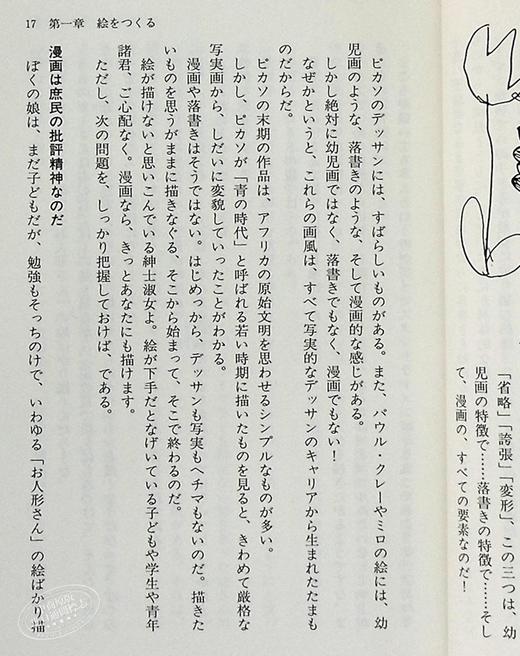 「省略」「誇張」「変形」、この三つは、幼
児画の特徴で……落書きの特徴で……そし
て、漫画の、すべての要素なのだ！
17　第一章　絵をつくる
ピカソのデッサンには、すばらしいものがある。また、パウル・クレーやミロの絵には、幼
児画のような、落書きのような、そして漫画的な感じがある。
しかし絶対に幼児画ではなく、落書きでもなく、漫画でもない！
なぜかというと、これらの画風は、すべて写実的なデッサンのキャリアから生まれたたまも
のだからだ。
ピカソの末期の作品は、アフリカの原始文明を思わせるシンプルなものが多い。
しかし、ピカソが「青の時代」と呼ばれる若い時期に描いたものを見ると、きわめて厳格な
写実画から、しだいに変貌していったことがわかる。
漫画や落書きはそうではない。はじめっから、デッサンも写実もヘチマもないのだ。描きた
いものを思うがままに描きなぐる、そこから始まって、そこで終わるのだ。
絵が描けないと思いこんでいる紳士淑女よ。絵が下手だとなげいている子どもや学生や青年
諸君、ご心配なく。漫画なら、きっとあなたにも描けます。
ただし、次の問題を、しっかり把握しておけば、である。
漫画は庶民の批評精神なのだ
ぼくの娘は、まだ子どもだが、勉強もそっちのけで、いわゆる「お人形さん」の絵ばかり描